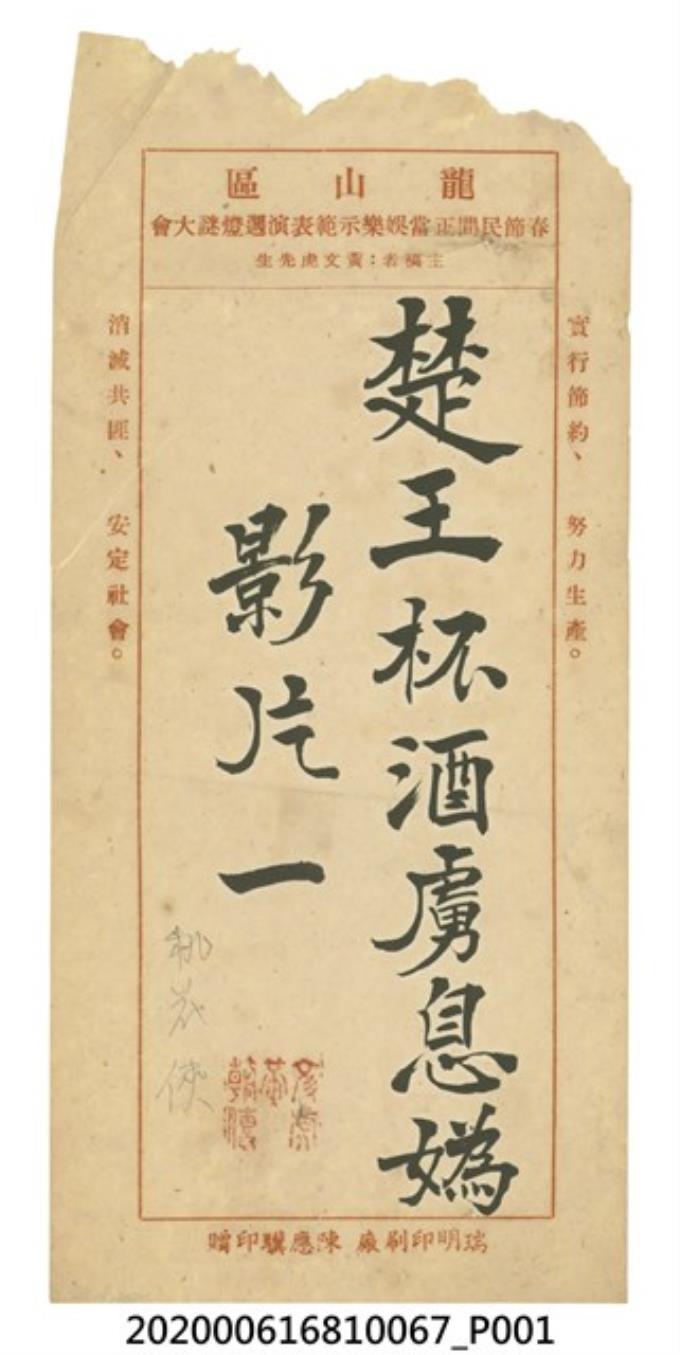 龍山區
春節民間正當娛樂示範表演選燈謎大會
主稿者:黃文虎先生
實行節約、 努力生產。
楚王杯酒虜息媯
影片一
桃花俠
消滅共匪、 安定社會。
瑞明印刷廠 陳應印贈
202000616810067_P001